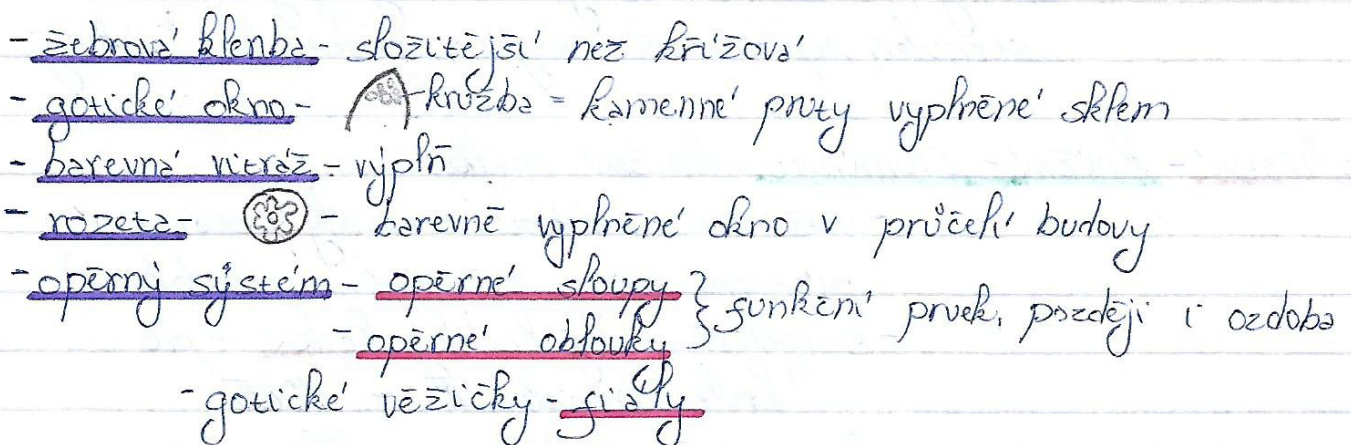 - žebrová klenba - složitější než křížová
- gotické okno - kružba = kamenné pruty vyplněné sklem
- barevná vitráž - výplň
- rozeta - - barevně vyplněné okno v průčelí budovy
- opěrný systém - opěrné sloupy } funkční prvek, později i ozdoba
- opěrné oblouky
- gotické věžičky - fiály